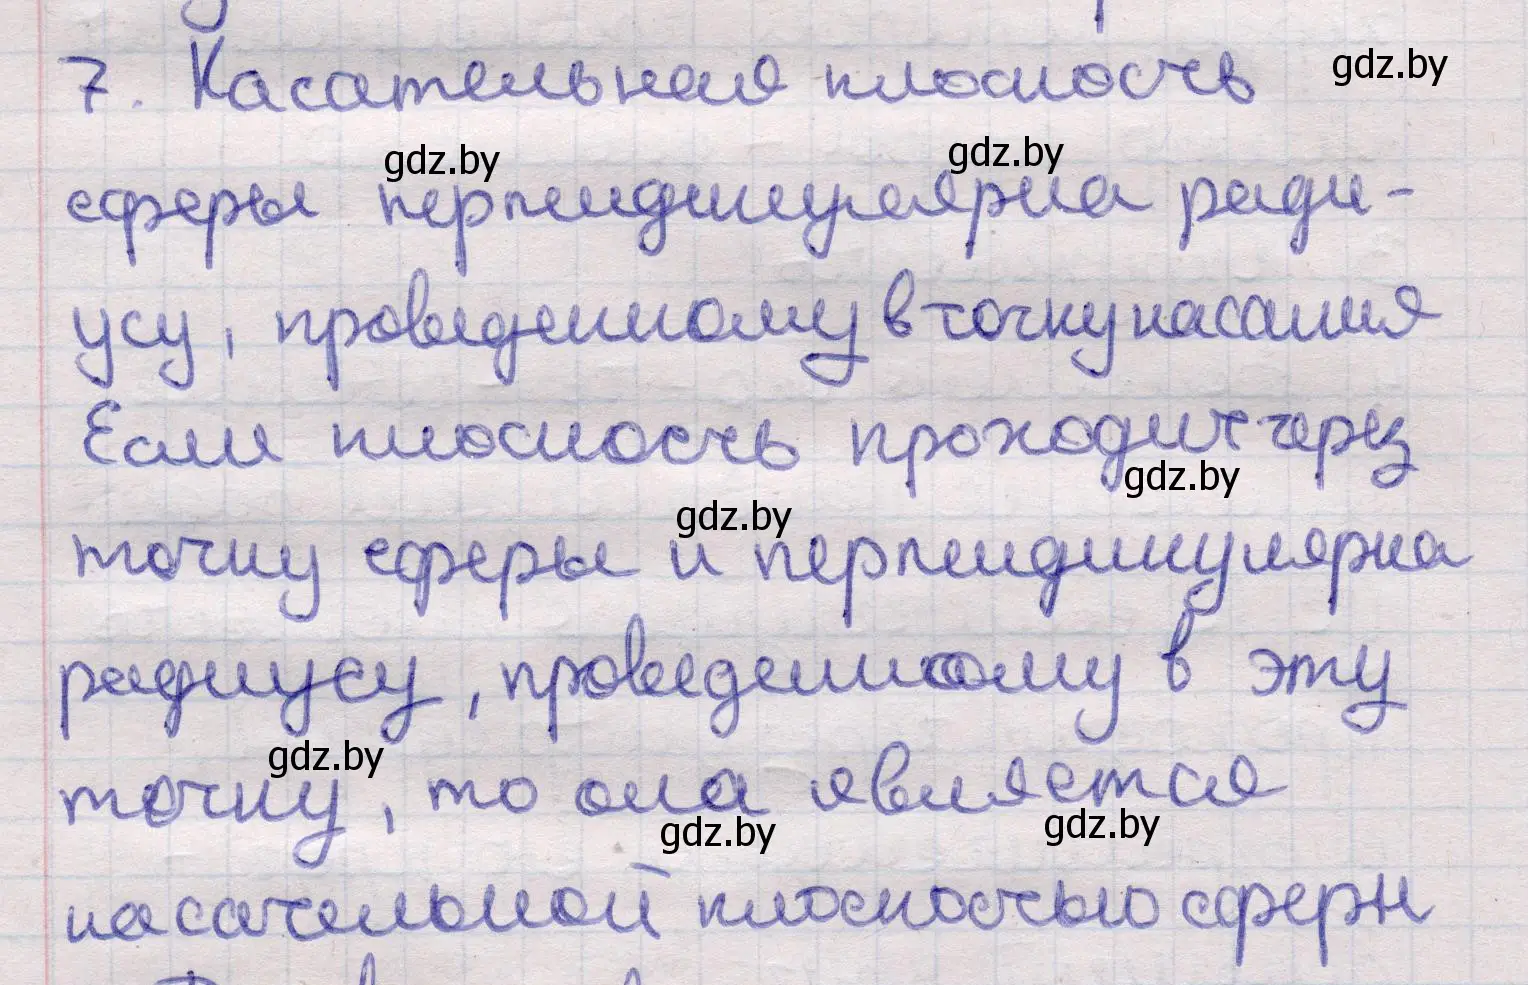 7. Касательная плоскость
gdz.by
gdz.by
gdz.by
сферы перпендикулярна ради-
усу, проведенному в точку касания
Если плоскость проходит через
gdz.by
gdz.by
точку сферы и перпендикулярна
радиусу, проведенному в эту
gdz.by
точку, то она является
gdz.by
gdz.by
касательной плоскостью сферы